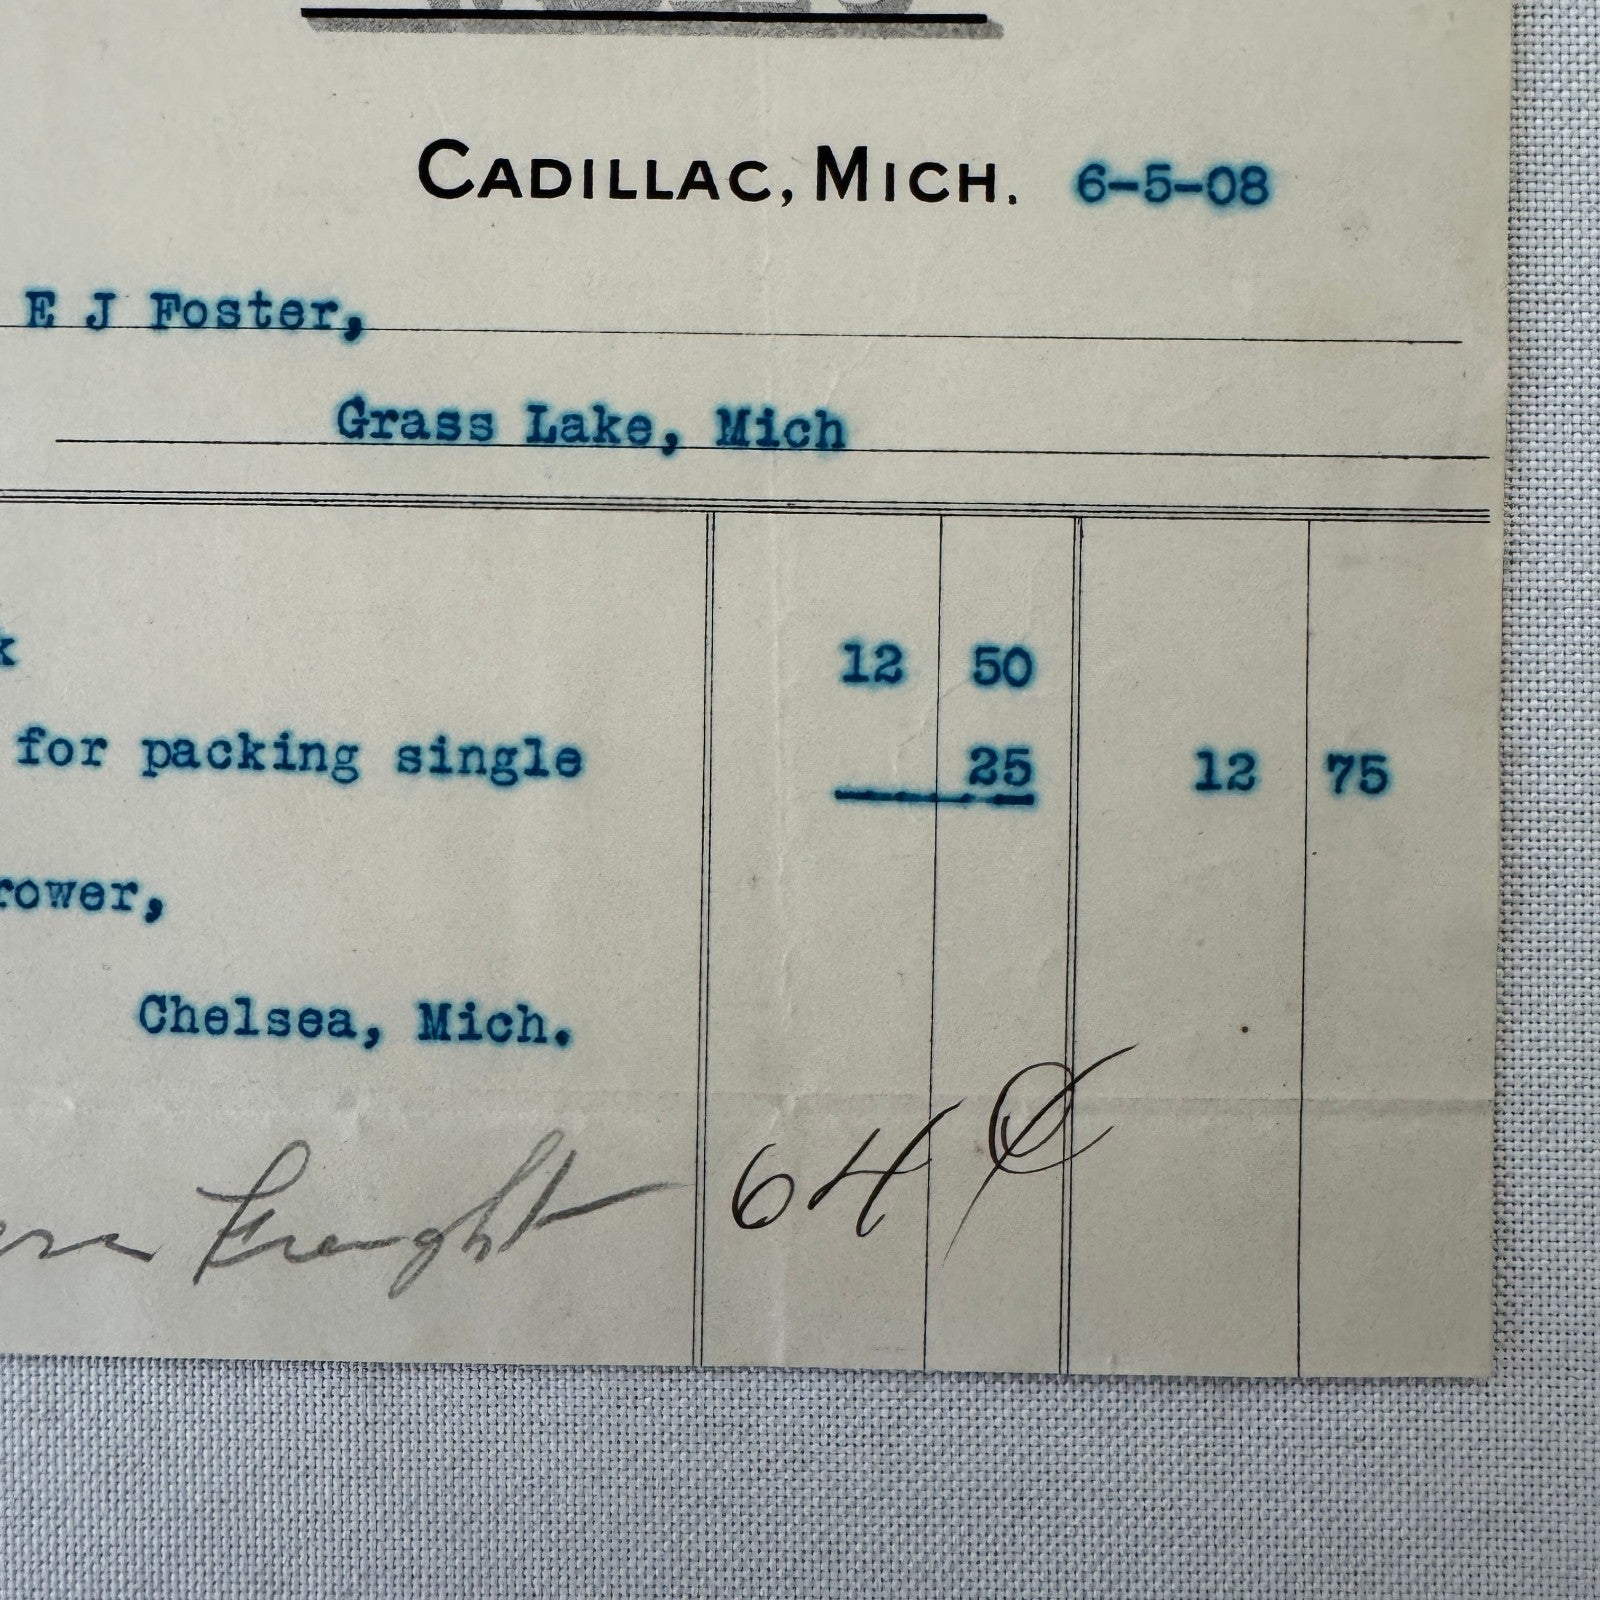 CADILLAC, MICH. 6-5-08
E J Foster,
Grass Lake, Mich
12 50
for packing single 25 12 75
Chelsea, Mich.
Freight 64 ¢